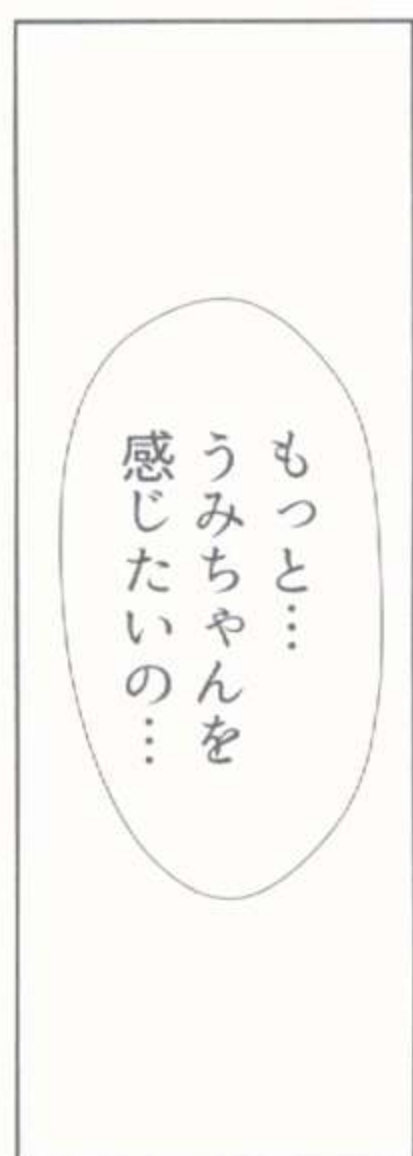 もっと…
うみちゃんを
感じたいの…